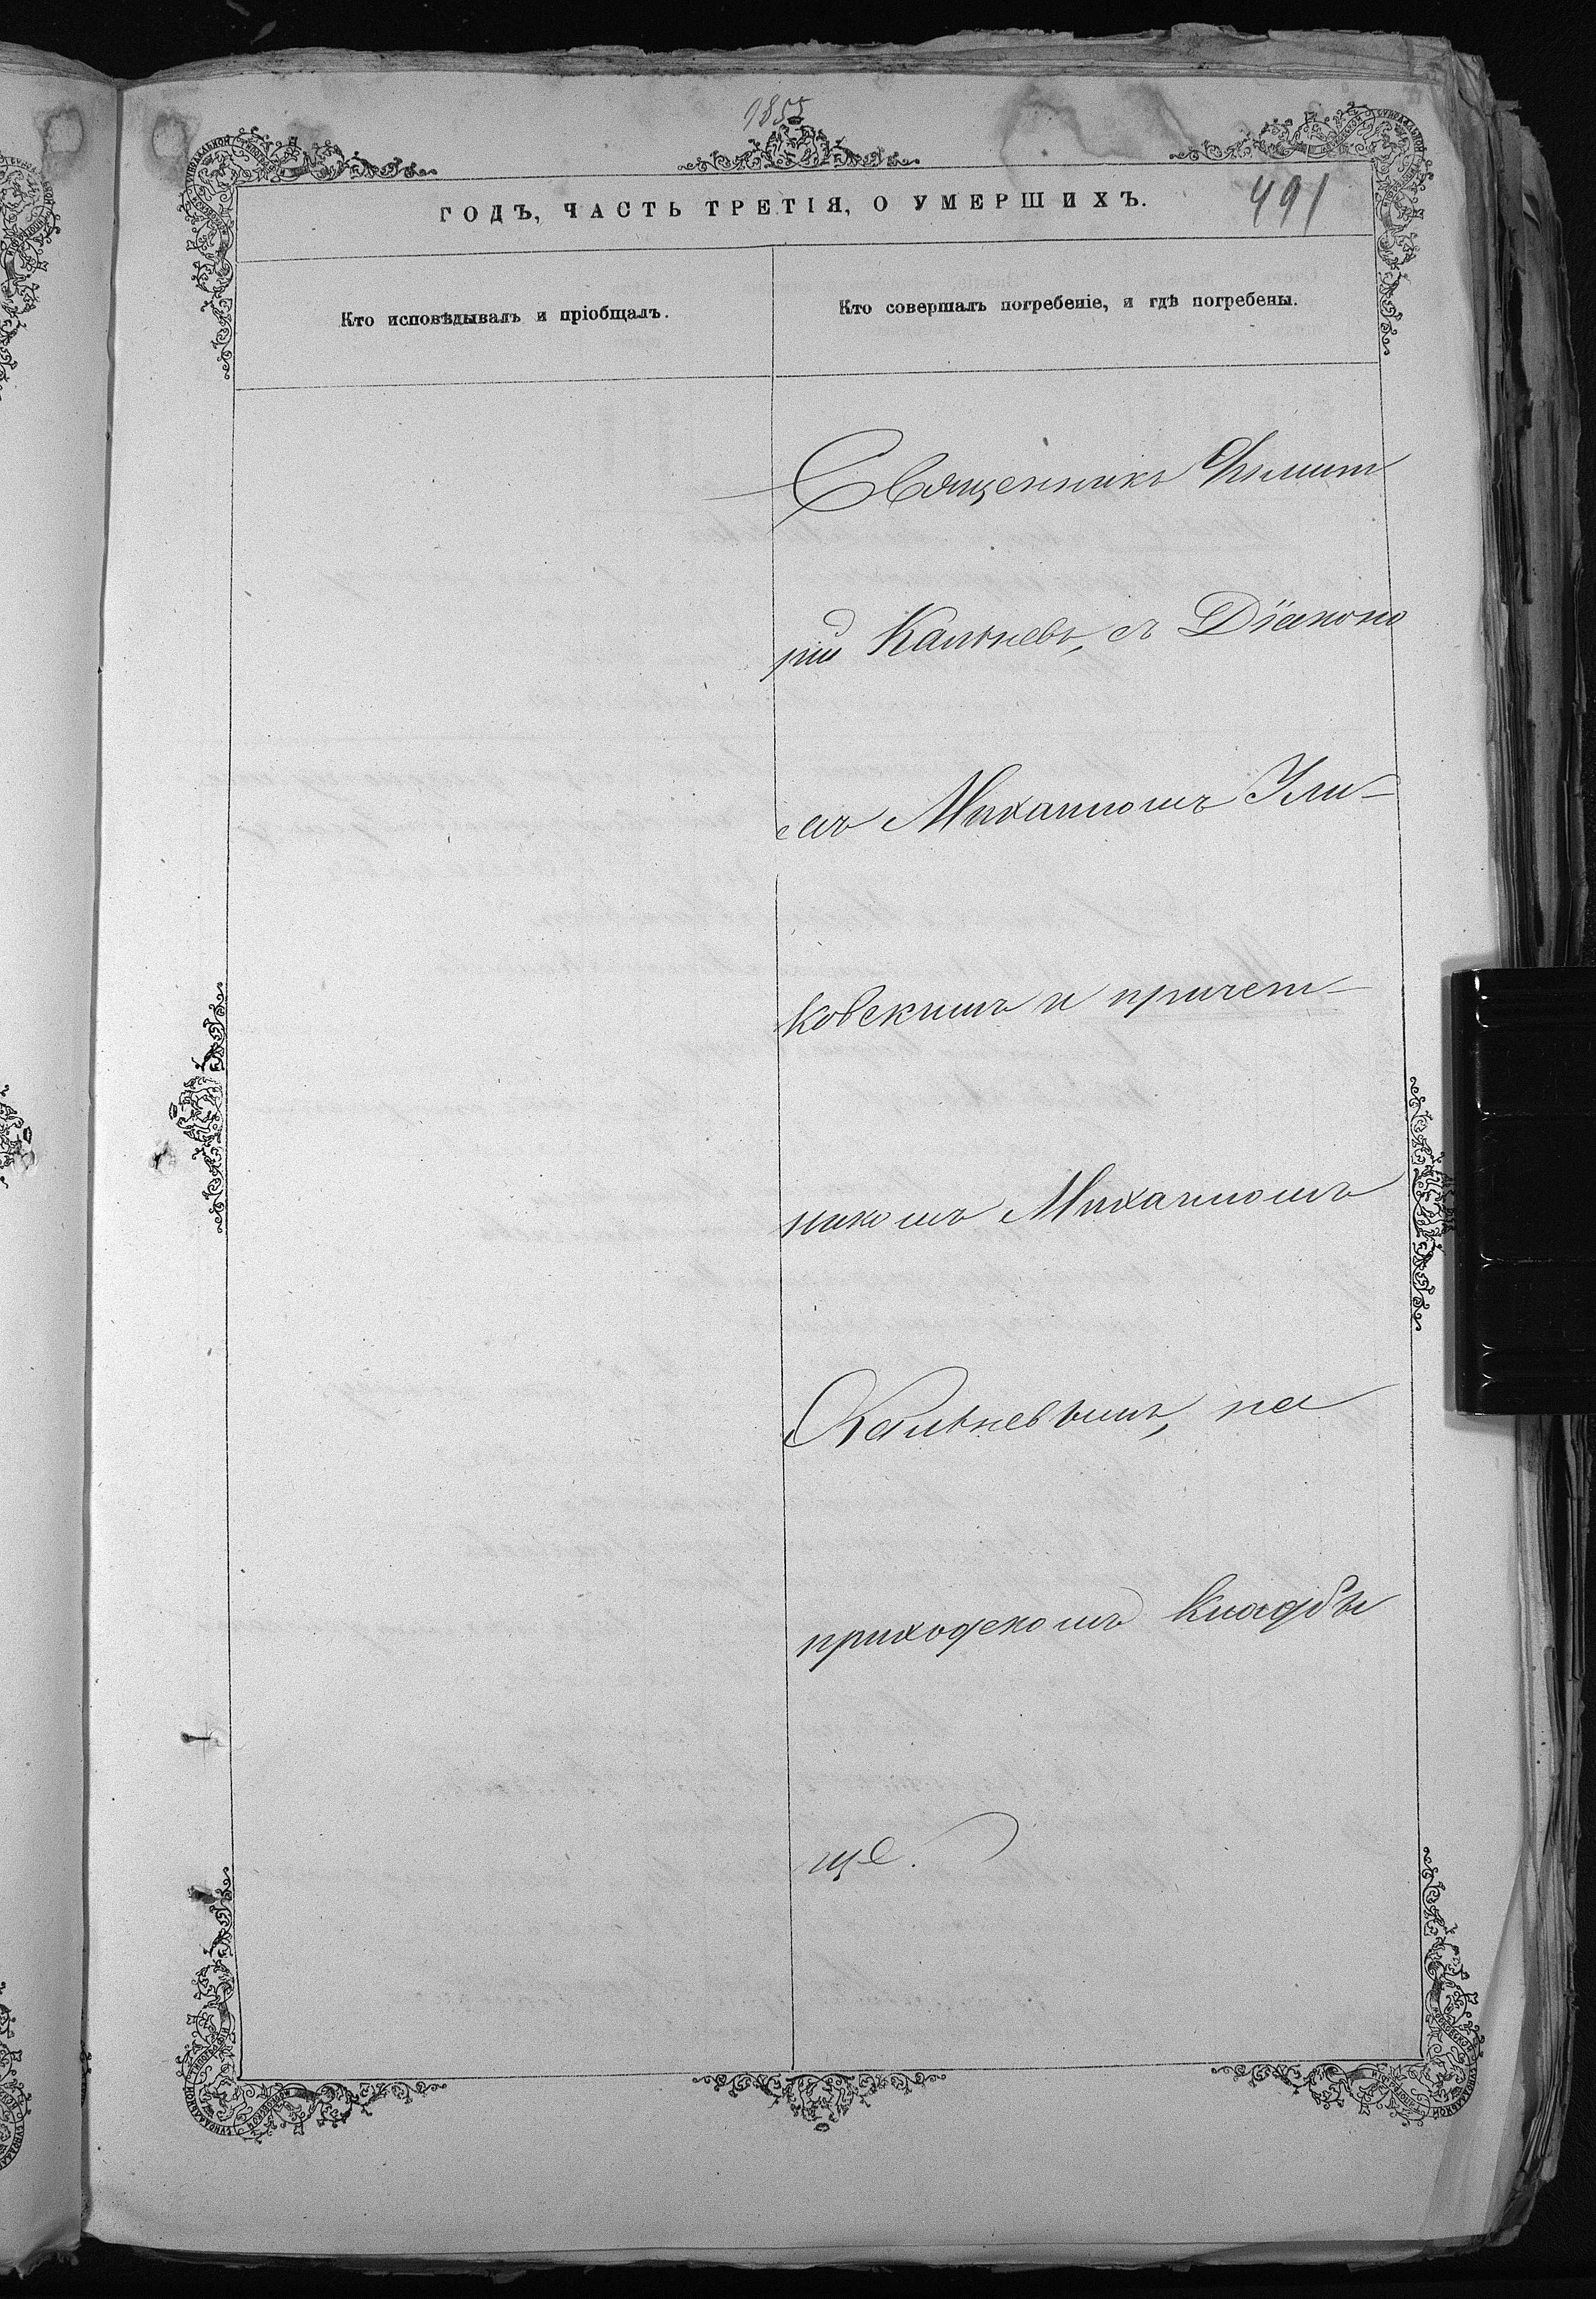 1855
ГОДЪ, ЧАСТЬ ТРЕТІЯ, О УМЕРШИХЪ.
491
Кто исповѣдывалъ и пріобщалъ.
Кто совершалъ погребеніе, и гдѣ погребены.
Священникъ
рій Калѣневъ, съ Діакono
мъ Михаиломъ Ули-
ковскимъ и причет-
никомъ Михаиломъ
Калѣневымъ, на
приходскомъ Кладби
ще.